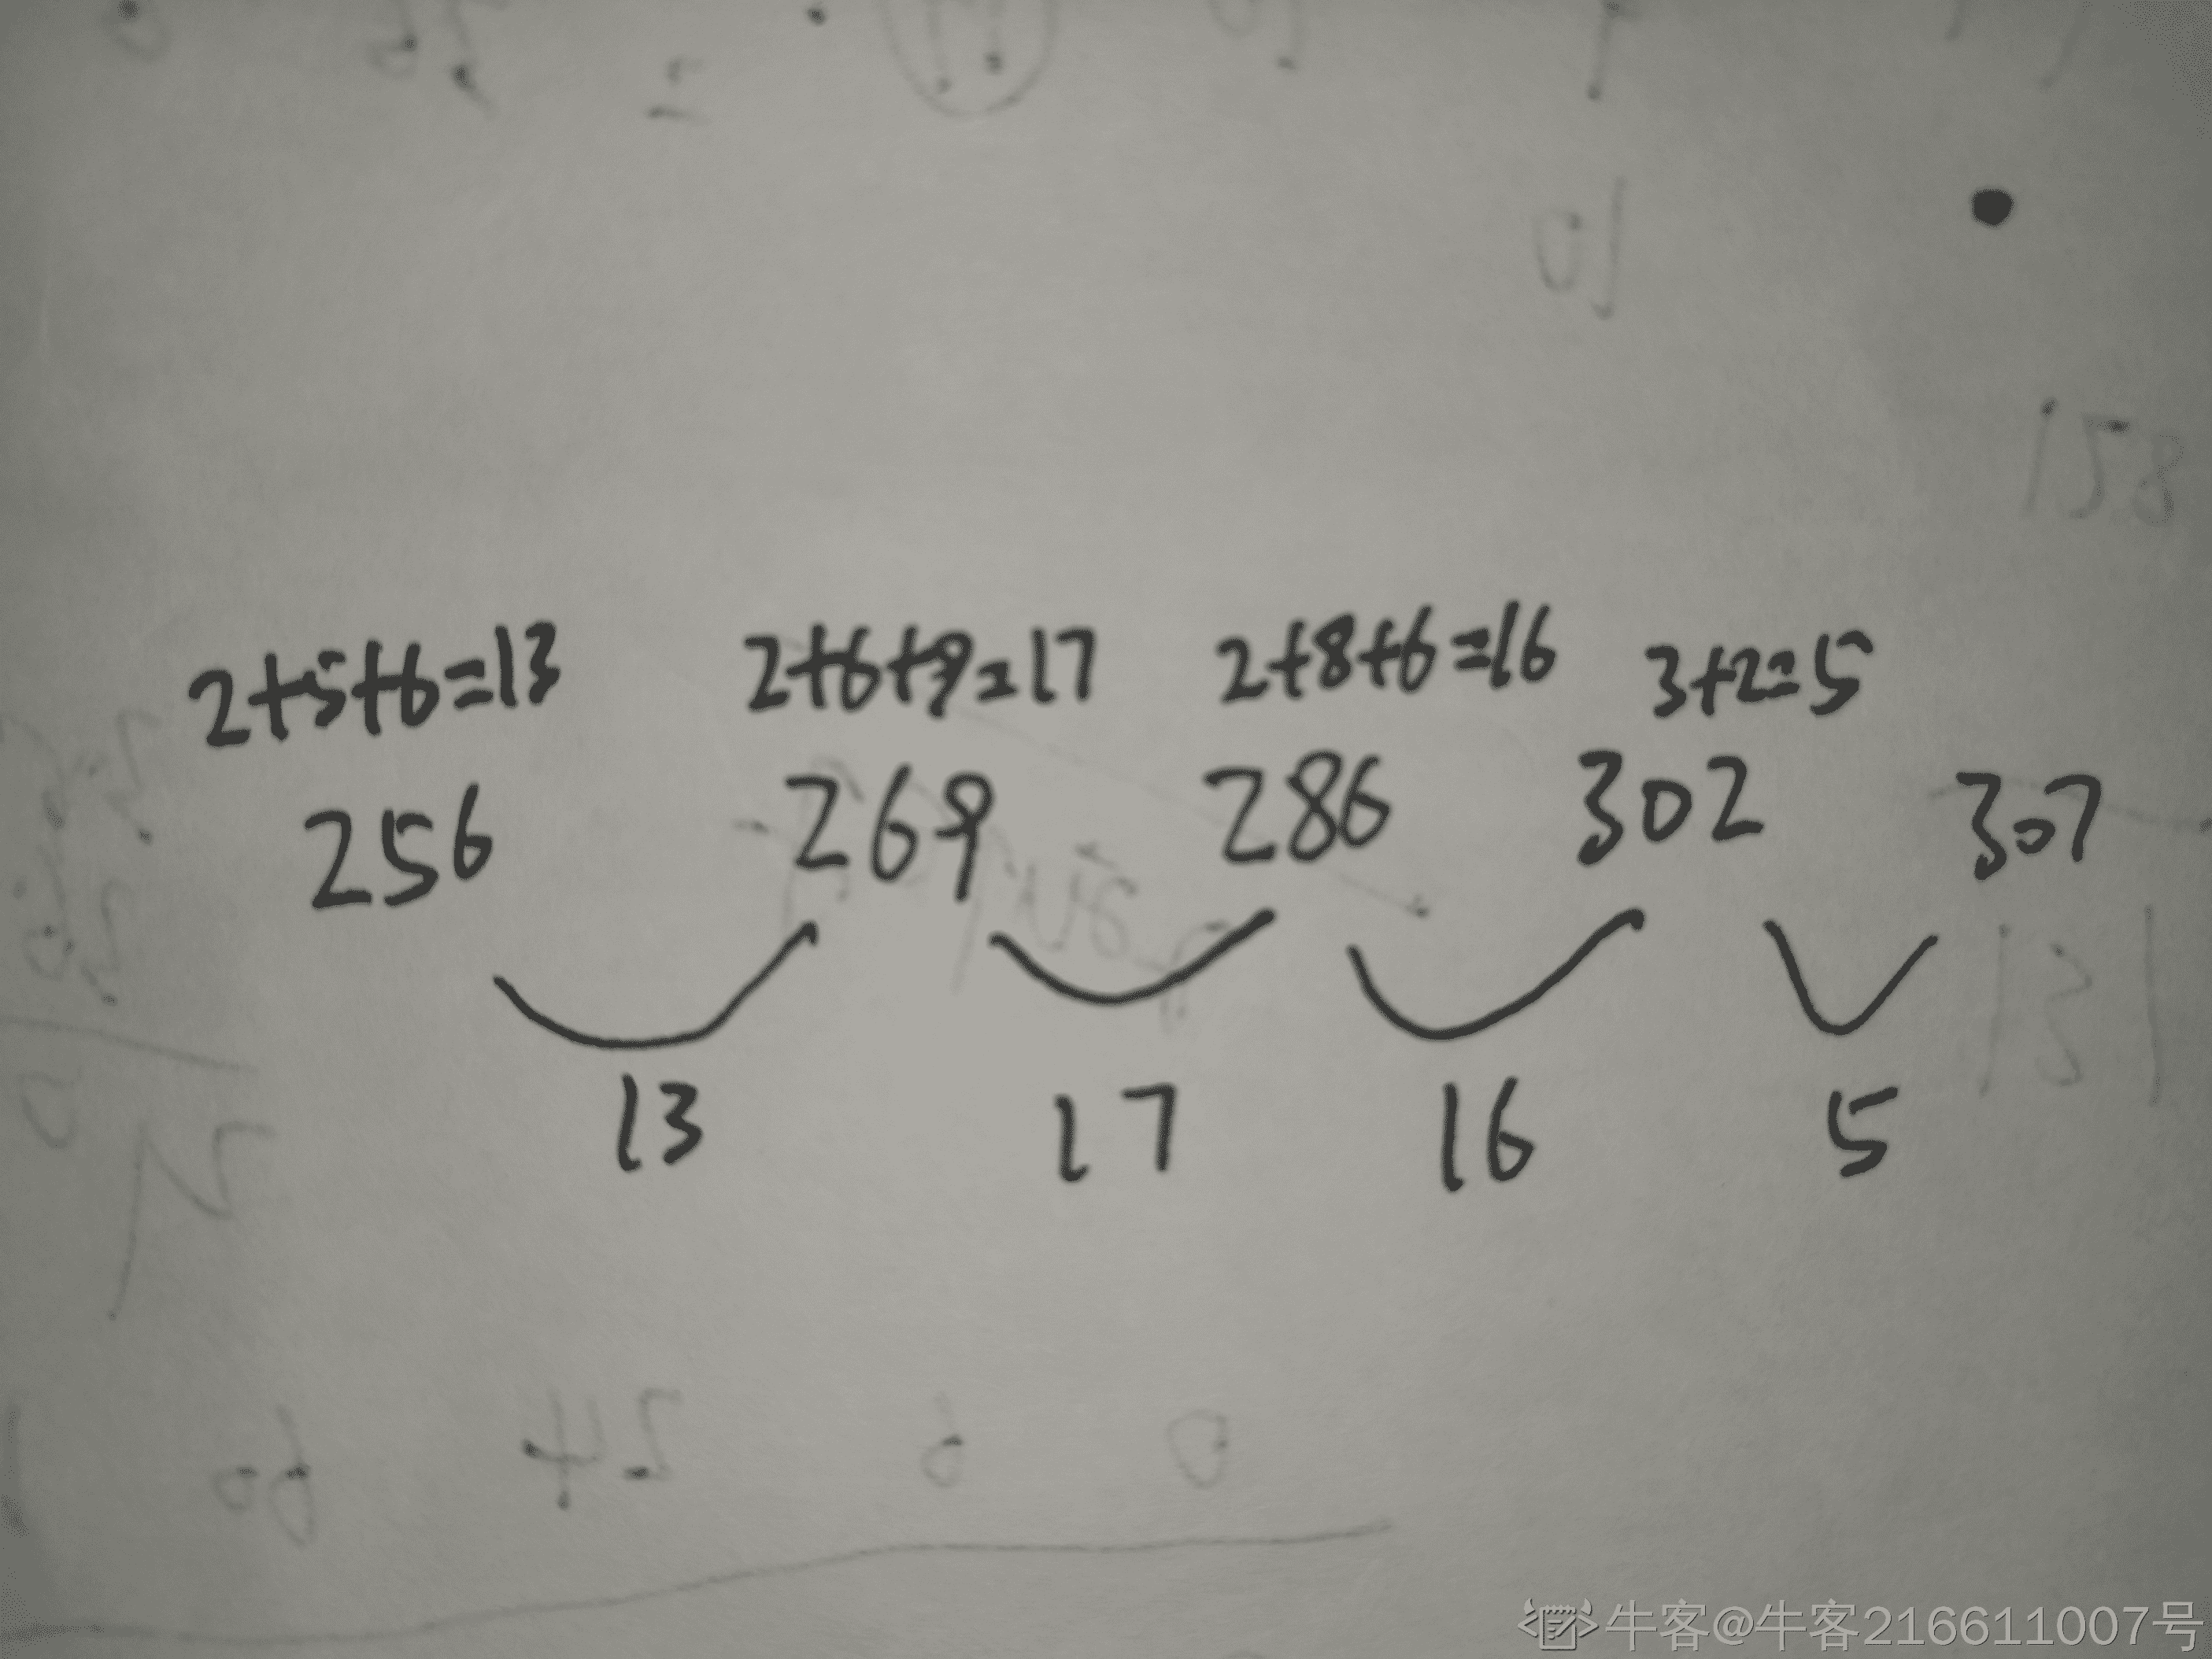 2+5+6=13 2+6+9=17 2+8+6=16 3+2=5
256 269 286 302 307
13 17 16 5
牛客@牛客216611007号